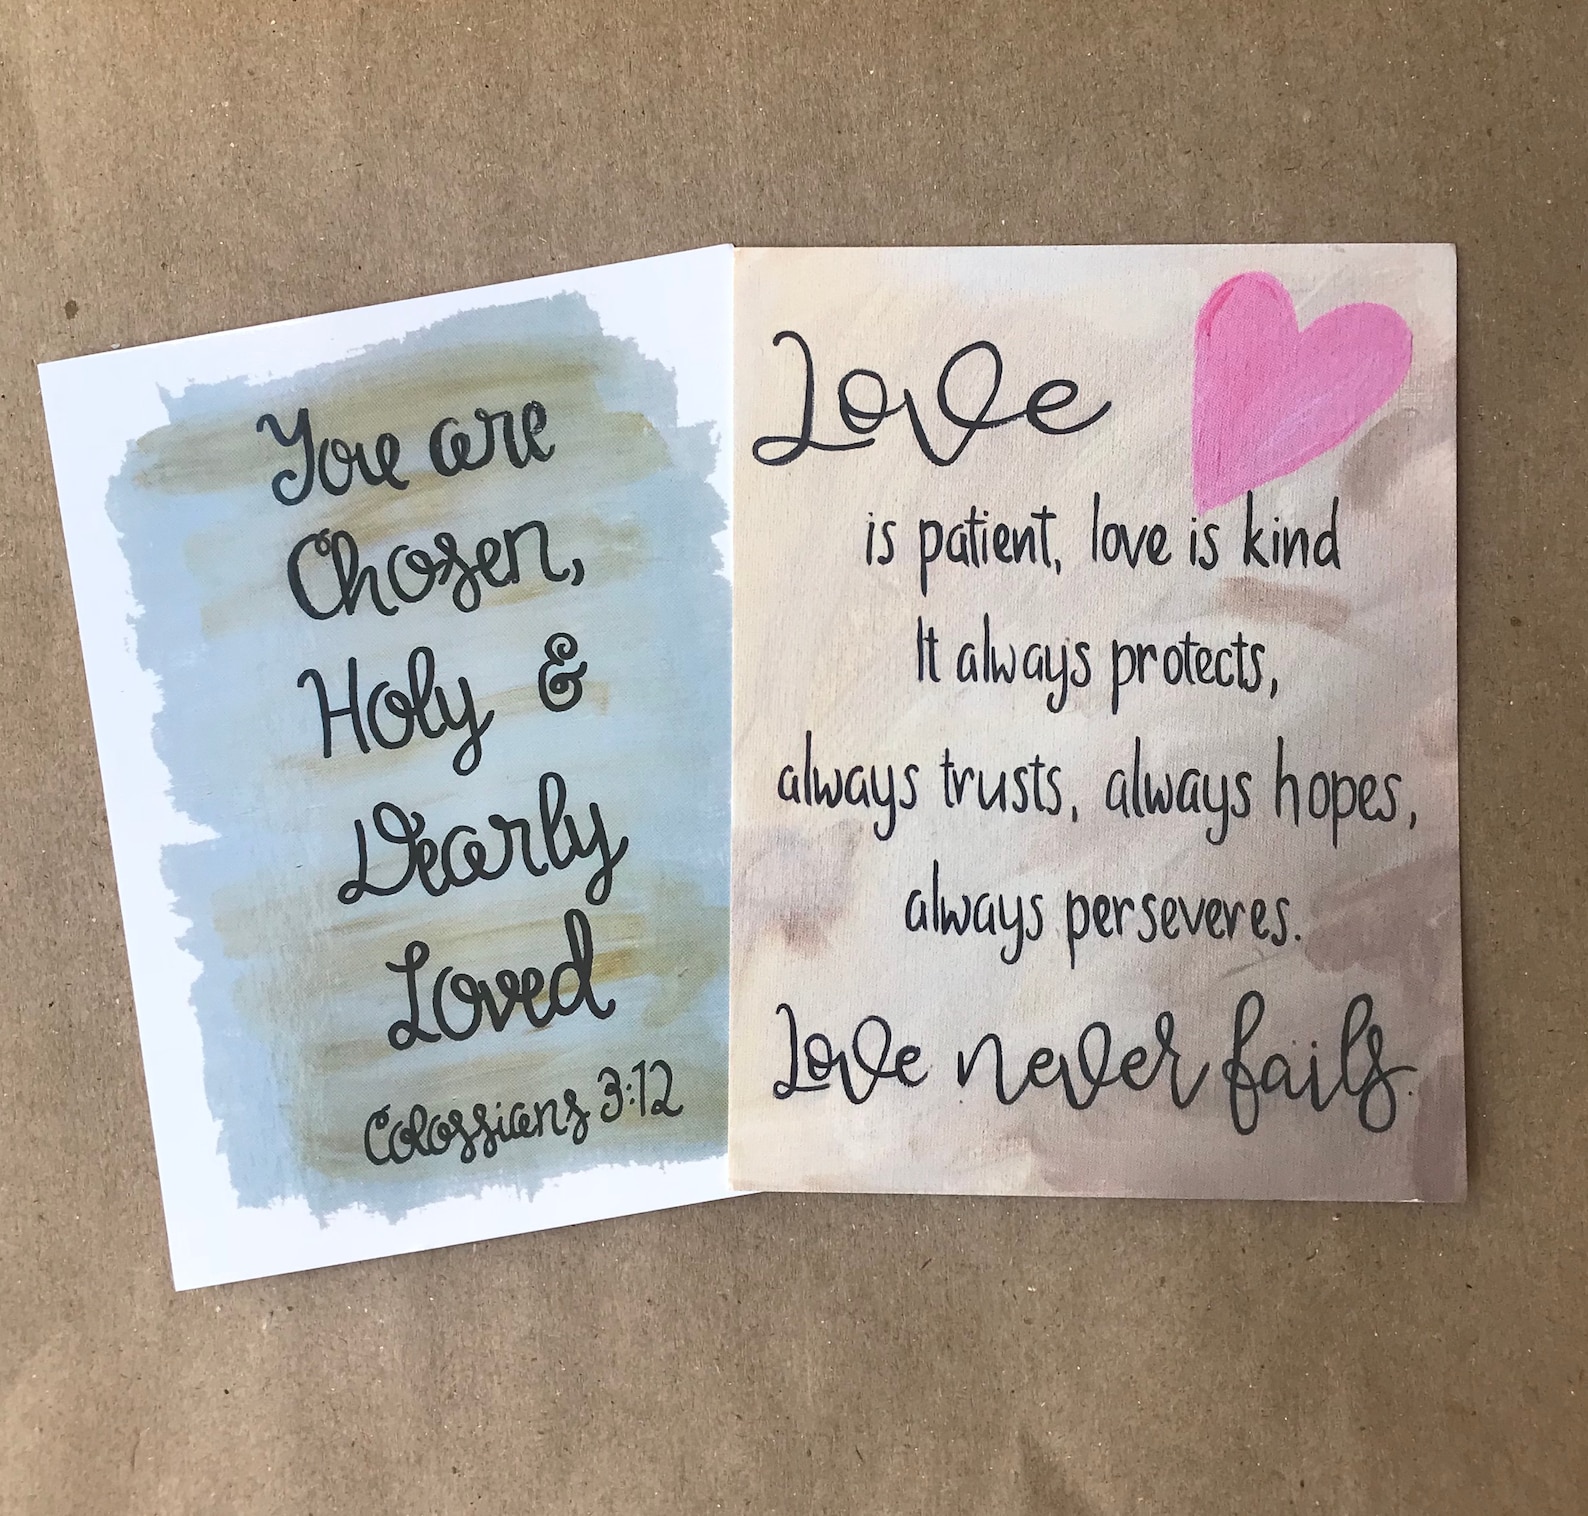 You are
Chosen,
Holy &
Dearly
Loved
Colossians 3:12
Love
is patient, love is kind
It always protects,
always trusts, always hopes,
always perseveres.
Love never fails.